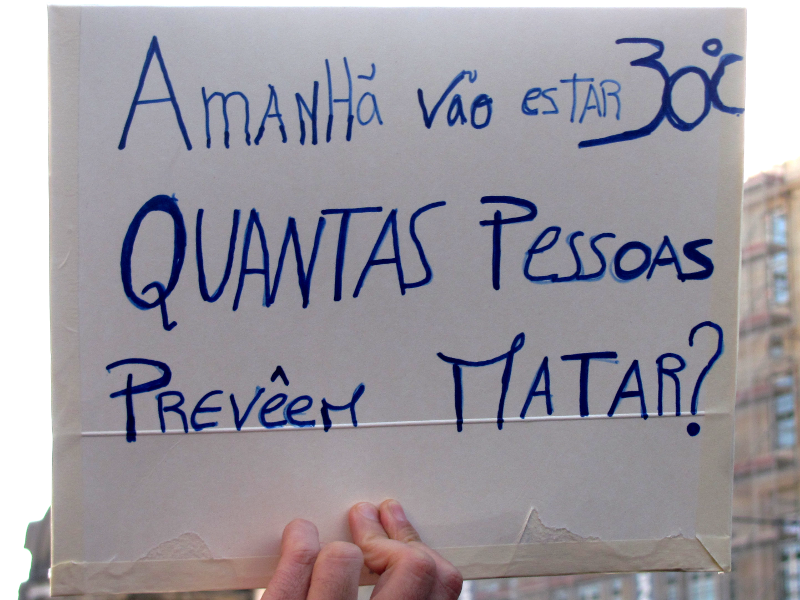 AmANHã vão esTAR 30ºC
QUANTAS PessoAs
PREVêem MATAR?